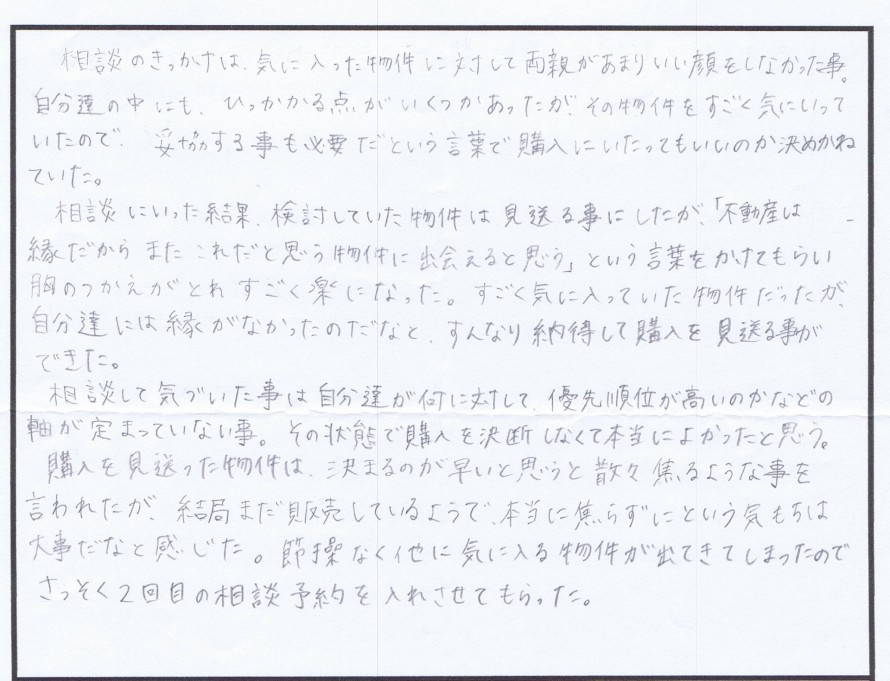 相談のきっかけは、気に入った物件に対して両親があまりいい顔をしなかった事。
自分達の中にも、ひっかかる点がいくつかあったが、その物件をすごく気にいって
いたので、妥協する事も必要だという言葉で購入にいたってもいいのか決めかね
ていた。
相談にいった結果、検討していた物件は見送る事にしたが、「不動産は
縁だからまたこれだと思う物件に出会えると思う」という言葉をかけてもらい
胸のつかえがとれすごく楽になった。すごく気に入っていた物件だったが、
自分達には縁がなかったのだなと、すんなり納得して購入を見送る事が
できた。
相談して気づいた事は自分達が何に対して、優先順位が高いのかなどの
軸が定まっていない事。その状態で購入を決断しなくて本当によかったと思う。
購入を見送った物件は、決まるのが早いと思うと散々焦るような事を
言われたが、結局まだ販売しているようで、本当に焦らずにという気もちは
大事だなと感じた。節操なく他に気に入る物件が出てきてしまったので
さっそく2回目の相談予約を入れさせてもらった。